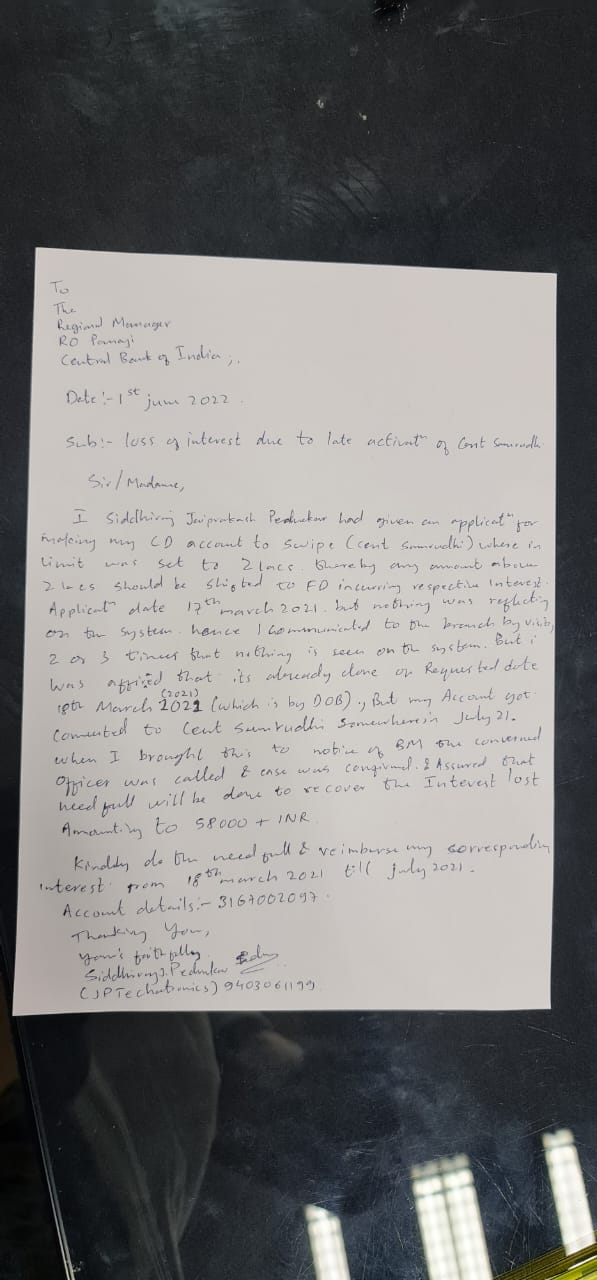 To
The
Regional Manager
RO Panaji
Central Bank of India ;.
Date :- 1st june 2022 .
Sub :- loss of interest due to late activatn of Cent Samrudh
Sir/Madame,
I Siddhiraj Jaiprakash Pednekar had given an applicatn for
making my CD account to swipe (cent samrudhi) where in
limit was set to 2 lacs. thereby any amount above
2 lacs should be shifted to FD incurring respective Interest.
Applicatn date 17th march 2021. but nothing was reflecting
on the system. hence I Communicated to the branch by visit,
2 or 3 times that nothing is seen on the system. But i
was that its already done on Requested date
18th March 2021 (2021) (which is by DOB)., But my Account got
Converted to Cent Samrudhi Somewhere in July 21.
when I brought this to notice of BM the concerned
Officer was called & case was confirmed. & Assured that
need full will be done to recover the Interest lost
Amounting to 58000 + INR.
Kindly do the need full & reimburse my corresponding
interest from 18th march 2021 till july 2021.
Account details :- 3167002097.
Thanking You,
your's faithfully
Siddhiraj J. Pednekar
(JP Techatronics) 9403061199